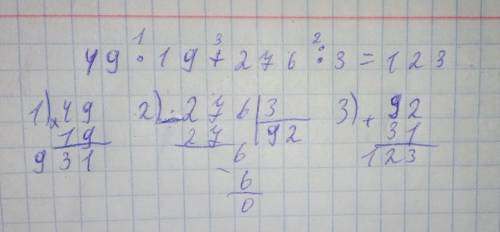 1 3 2
49 · 19 + 276 : 3 = 123
1) 49 2) 276 | 3 3) 92
× 19 - 27 92 + 31
931 6 123
- 6
0